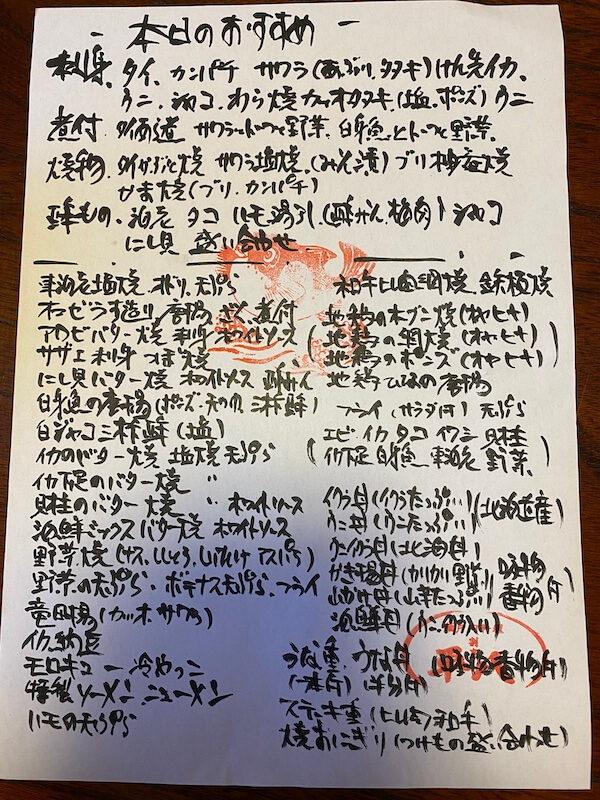 本日のおすすめ
刺身、タイ、カンパチ サワラ(あぶり、タタキ)けん先イカ、
ウニ、シャコ、わら焼カツオタタキ、(塩、ポンズ)ウニ
煮付 タイ 野菜、白身魚 野菜、
焼物、タイかぶと焼 サワラ塩焼、(みそ漬)ブリ柚庵焼
かま焼(ブリ、カンパチ)
酢もの、海老 タコ ハモ湯引、(酢みそ 梅肉)シャコ
にし貝 盛り合わせ
車海老塩焼、オドリ、天ぷら
オコゼうす造り 唐揚 煮付
アワビバター焼 刺身 ホワイトソース
サザエ刺身 つぼ焼
にし貝バター焼 ホワイトソース 酢みそ
白身魚の唐揚(ポンズ 三杯酢)
三杯酢(塩)
イカのバター焼 塩焼 天ぷら
イカ下足のバター焼 〃
貝柱のバター焼 〃 ホワイトソース
海鮮ミックスバター焼 ホワイトソース
野菜焼(ナス、ししとう、しいたけ アスパラ)
野菜の天ぷら、ポテナス天ぷら、フライ
竜田揚(カツオ サワラ)
イカ納豆
モロキュー 冷やっこ
特製ソーメン ニューメン
ハモの天ぷら
和牛ヒレ 網焼 鉄板焼
地鶏のオーブン焼(オヤ ヒナ)
地鶏の網焼(オヤ ヒナ)
地鶏のポンズ(オヤ ヒナ)
地鶏ひなの唐揚
フライ(サラダ付) 天ぷら
(エビ、イカ タコ イワシ 貝柱
イカ下足 白身魚 車海老 野菜)
イクラ丼(イクラたっぷり)(北海道産)
ウニ丼(ウニたっぷり)
ウニイクラ丼(北海丼)
かき揚丼(かりかり野菜)吸物
山かけ丼(山芋たっぷり)香物付
海鮮丼(ウニ、イクラ入り)
うな重、うな丼 (吸物香物付)
(一本付)(半分付)
ステーキ重(ヒレ肉)和牛
焼おにぎり(つけもの盛り合わせ)